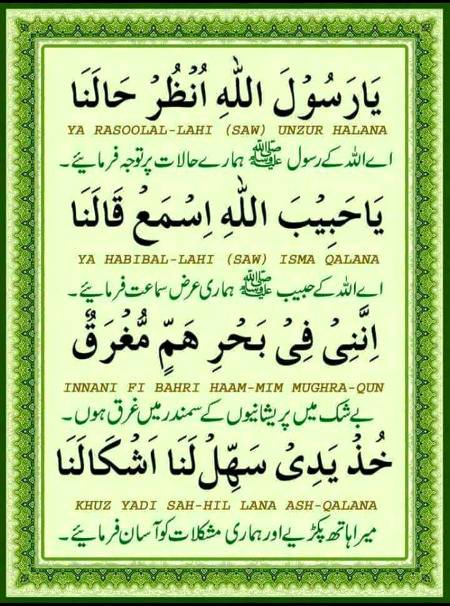 يَارَسُوْلَ اللّٰهِ اُنْظُرْ حَالَنَا
YA RASOOLAL-LAHI (SAW) UNZUR HALANA
اے اللہ کے رسول ﷺ ہمارے حالات پر توجہ فرمائیے۔
يَاحَبِيْبَ اللّٰهِ اِسْمَعْ قَالَنَا
YA HABIBAL-LAHI (SAW) ISMA QALANA
اے اللہ کے حبیب ﷺ ہماری عرض سماعت فرمائیے۔
اِنَّنِيْ فِيْ بَحْرِ هَمٍّ مُّغْرَقٌ
INNANI FI BAHRI HAAM-MIM MUGHRA-QUN
بے شک میں پریشانیوں کے سمندر میں غرق ہوں۔
خُذْ يَدِيْ سَهِّلْ لَنَا اَشْكَالَنَا
KHUZ YADI SAH-HIL LANA ASH-QALANA
میرا ہاتھ پکڑیے اور ہماری مشکلات کو آسان فرمائیے۔